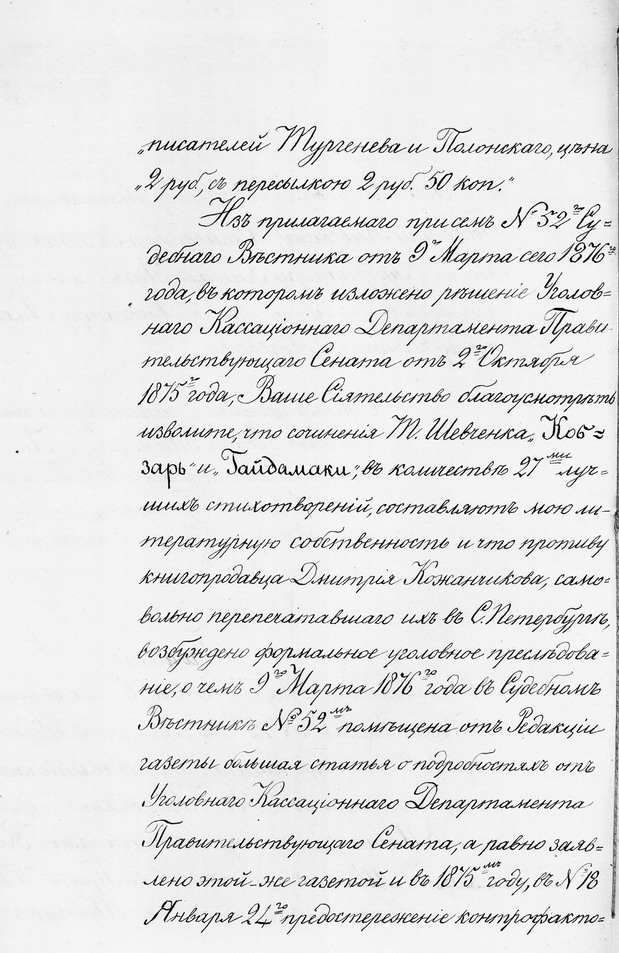 „писателей Тургенева и Полонскаго, цѣна
„2 руб., съ пересылкою 2 руб. 50 коп.“
Изъ прилагаемаго при семъ № 52го Су-
дебнаго Вѣстника отъ 9го Марта сего 1876го
года, въ которомъ изложено рѣшеніе Уголов-
наго Кассаціоннаго Департамента Прави-
тельствующаго Сената отъ 2го Октября
1875го года, Ваше Сіятельство благоусмотрѣть
изволите, что сочиненія Т. Шевченка „Коб=
зарь“ и „Гайдамаки“, въ количествѣ 27ми луч-
шихъ стихотвореній, составляютъ мою ли-
тературную собственность и что противу
книгопродавца Дмитрія Кожанчикова, само-
вольно перепечатавшаго ихъ въ С. Петербургѣ,
возбуждено формальное уголовное преслѣдова-
ніе, о чемъ 9го Марта 1876го года въ Судебномъ
Вѣстникѣ № 52мъ помѣщена отъ Редакціи
газеты большая статья о подробностяхъ отъ
Уголовнаго Кассаціоннаго Департамента
Правительствующаго Сената, а равно заяв-
лено этой-же газетой и въ 1875мъ году, въ № 18
Января 24го предостереженіе контрофакто=